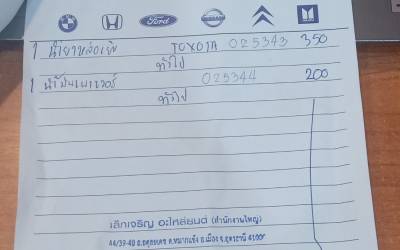 Ford
NISSAN
1 น้ำยาหล่อเย็น TOYOTA 025343 350
ทั่วไป
1 น้ำมันเพาเวอร์ 025344 200
ทั่วไป
เลิกเจริญ อะไหล่ยนต์ (สำนักงานใหญ่)
44/39-40 ถ.อดุลยเดช ต.หมากแข้ง อ.เมือง จ.อุดรธานี 41000